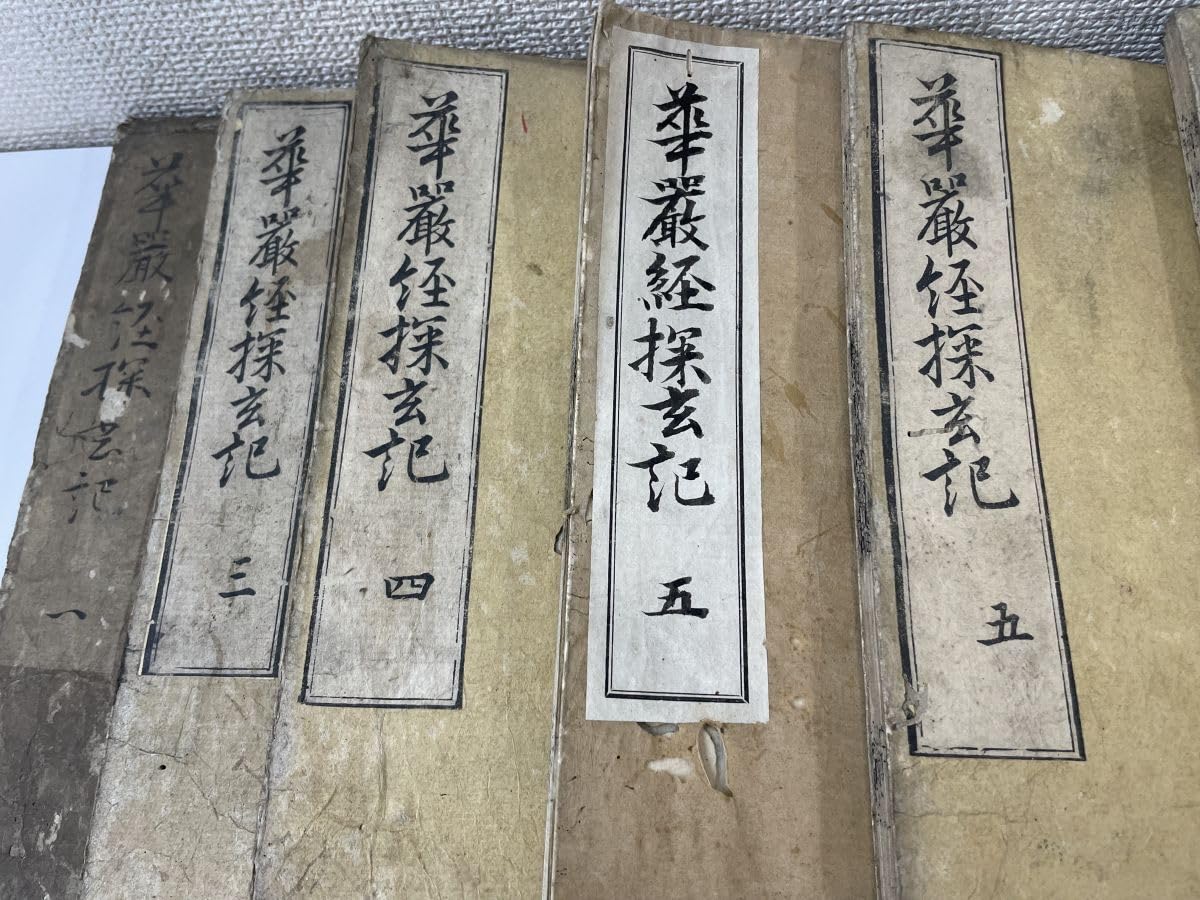 華嚴経探玄記 一
華嚴経探玄記 三
華嚴経探玄記 四
華嚴経探玄記 五
華嚴経探玄記 五